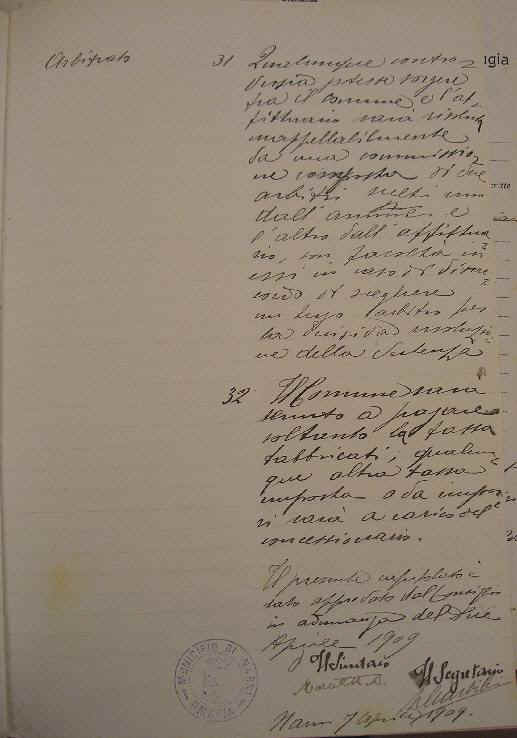 Arbitrato
31 Qualunque contro-
versia potesse sorgere
fra il Comune e l'af-
fittuario sarà risoluta
inappellabilmente
da una commissio-
ne composta di due
arbitri scelti uno
dall' e
l'altro dall'affittua-
rio, con facoltà in
essi in caso di disac-
cordo di scegliere
un terzo arbitro per
la risoluzio-
ne della
32 Il Comune sarà
tenuto a pagare
soltanto la tassa
fabbricati, qualun-
que altra tassa
imposta o da impor-
si sarà a carico del
concessionario.
Il presente capitolato è
stato approvato dal Consiglio
in adunanza del due
Aprile 1909
Il Sindaco
Il Segretario
MUNICIPIO DI
7 Aprile 1909.